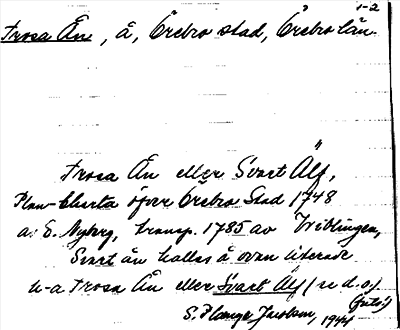 1-2
Trosa Ån, å, Örebro stad, Örebro län.
Trosa Ån eller Svart Älf,
Plan-Charta öfver Örebro Stad 1748
av E. Nyberg, transp. 1785 av Wiblingen,
Svart ån kallas å ovan citerade
u-a Trosa Ån eller Svart Älf (se d.o.)
S. Plange Jacobson, 1944